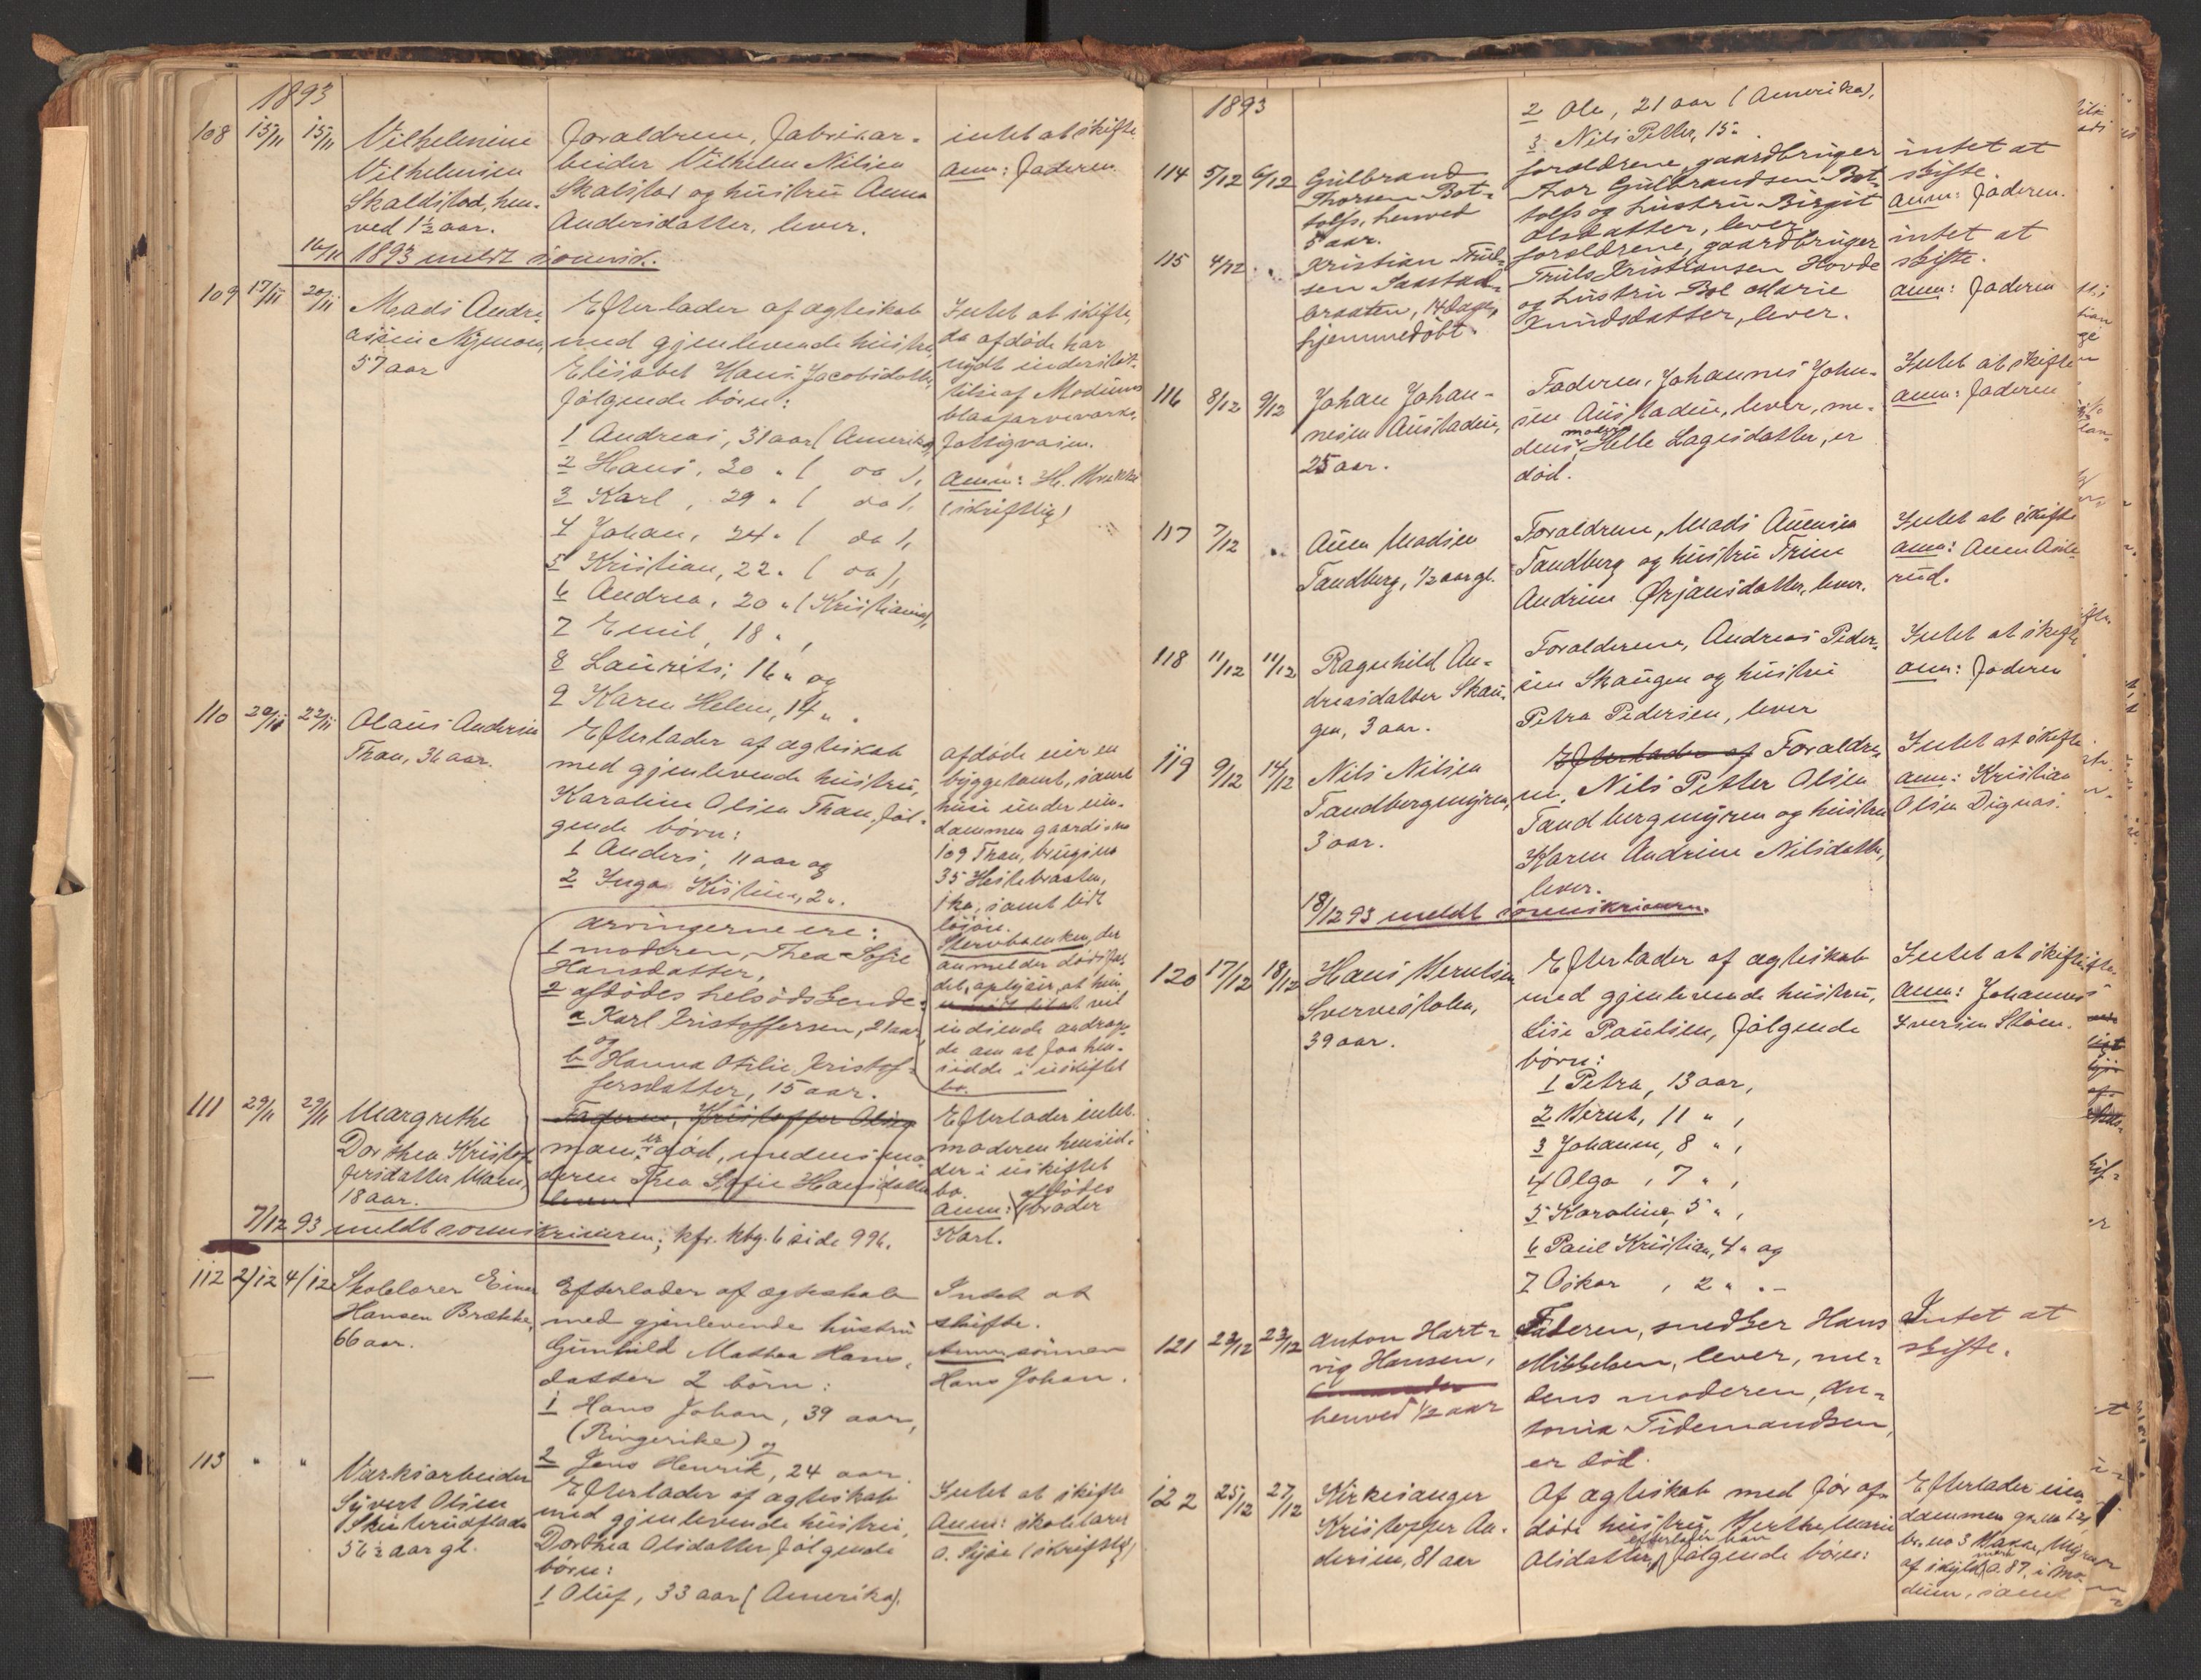 1893
108 15/11 15/11 Vilhelmine
Vilhelmsen
Skaldstad, hen-
ved 1½ aar.
Forældrene, fabrikar-
beider Vilhelm Nilsen
Skalstad og hustru Anna
Andersdatter, lever.
intet at skifte
anm: faderen
16/11 1893 meldt sorensk.
109 17/11 20/11 Mads Andre-
assen Nymoen,
57 aar
Efterlader af ægteskab
med gjenlevende hustru,
Elisabet Hans Jacobsdatter
følgende børn:
1 Andreas, 31 aar (Amerika),
2 Hans, 30 " ( do ),
3 Karl, 29 " ( do ),
4 Johan, 24 " ( do ),
5 Kristian, 22 " ( do ),
6 Andrea, 20 " (Kristiania),
7 Emil, 18 " ,
8 Laurits, 16 " og
9 Karen Helene, 14 " .
Intet at skifte,
da afdøde har
nydt understøt-
telse af Modums
blaafarveværks
fattigvæsen.
Anm: H.
(skriftlig)
110 20/11 22/11 Olaus Andersen
Thon, 36 aar.
Efterlader af ægteskab
med gjenlevende hustru,
Karoline Olsen Thon, føl-
gende børn:
1 Anders, 11 aar og
2 Inga Kistine, 2 ".
afdøde eier en
byggetomt, samt
huse under eien-
dommen gaards no
109 Thon, brugs no
35 Hestebraaten,
1 ko, samt lidt
løsøre.
Stervboenken, der
anmelder dødsfal-
det, oplyser, at hun
vil
indsende andragen-
de om at faa hen-
sidde i uskiftet
bo.
arvingerne ere:
1 moderen, Thea Sofie
Hansdatter,
2 afdødes helsødskende:
a Karl Kristoffersen, 21 aar
og
b Hanna Otilie Kristof-
fersdatter, 15 aar.
111 29/11 29/11 Margrethe
Dorthea Kristof-
fersdatter Moen,
18 aar.
Faderen, Kristoffer Olsen
moen er død, medens mo-
deren Thea Sofie Hansdatter
lever
Efterlader intet.
moderen hensid-
der i uskiftet
bo.
anm: afdødes
broder
Karl.
7/12 93 meldt sorenskriveren; kfr. kbg. 6 side 996.
112 2/12 4/12 Skolelærer Einar
Hansen Brække,
66 aar.
Efterlader af ægteskab
med gjenlevende hustru
Gunhild Mathea Hans-
datter 2 børn:
1 Hans Johan, 39 aar,
(Ringerike) og
2 Jens Henrik, 24 aar.
Intet at
skifte.
Anm. sønnen
Hans Johan.
113 " " Værksarbeider
Syvert Olsen
Skuterudflata
56½ aar gl.
Efterlader af ægteskab
med gjenlevende hustru,
Dorthea Olsdatter følgende
børn:
1 Oluf, 33 aar (Amerika),
Intet at skifte
Anm: skolelærer
O. (skriftlig)
1893
2 Ole, 21 aar (Amerika),
3 Nils Petter, 15 " .
114 5/12 6/12 Gulbrand
Thorsen Bot-
tolfs, henved
5 aar.
forældrene, gaardbruger
Thor Gulbrandsen Bot-
tolfs og hustru Birgit
Olsdatter, lever
intet at
skifte.
anm: faderen.
115 4/12 " Kristian Trul-
sen Saastad-
braaten, 14 dage,
hjemmedøbt.
forældrene, gaardbruger
Truls Kristiansen Hovde
og hustru Bol Marie
Knudsdatter, lever.
intet at
skifte.
anm: faderen
116 8/12 9/12 Johan Johan-
nesen Austadeie,
25 aar.
Faderen, Johannes John-
sen Austadeie, lever, me-
dens moder Helle Lagesdatter, er
død.
Intet at skifte
anm: faderen
117 7/12 " Auen Madsen
Tandberg, ½ aar gl.
Forældrene, Mads Auensen
Tandberg og hustru Trine
Andrine Ørjansdatter, lever.
Intet at skifte
anm: Auen Asle-
rud.
118 11/12 11/12 Ragnhild An-
dreasdatter Skau-
gen, 3 aar.
Forælderene, Andreas Peder-
sen Skaugen og hustru
Petra Pedersen, lever
Intet at skifte
anm: faderen
119 9/12 14/12 Nils Nilsen
Tandbergmyren,
3 aar.
Efterlader af Forældre-
ne, Nils Petter Olsen
Tandbergmyren og hustru
Karen Andrine Nilsdatter,
lever.
Intet at skifte
anm: Kristian
Olsen Dignæs.
18/12 93 meldt sorenskriveren.
120 17/12 18/12 Hans Berntsen
Svervestolen,
39 aar.
Efterlader af ægteskab
med gjenlevende hustru,
Lise Paulsen, følgende
børn:
1 Petra, 13 aar,
2 Bernt, 11 " ,
3 Johanne, 8 " ,
4 Olga , 7 " ,
5 Karoline, 5 " ,
6 Paul Kristian, 4 " og
7 Oskar , 2 " . -
Intet at skifte
anm: Johannes
Iversen Støen.
121 22/12 23/12 Anton Hart-
vig Hansen,
henved ½ aar
Faderen, snedker Hans
Mikkelsen, lever, me-
dens moderen, An-
tonia Tidemandsen,
er død.
Intet at
skifte.
122 25/12 27/12 Kirkesanger
Kristoffer An-
dersen, 81 aar
Af ægteskab med før af-
døde hustru, Berthe Marie
Olsdatter, efterlader han følgende børn:
Efterlader eien-
dommen gr. no 121
br. no 3
af skyld mark 0.87, i Mo-
dum, samt